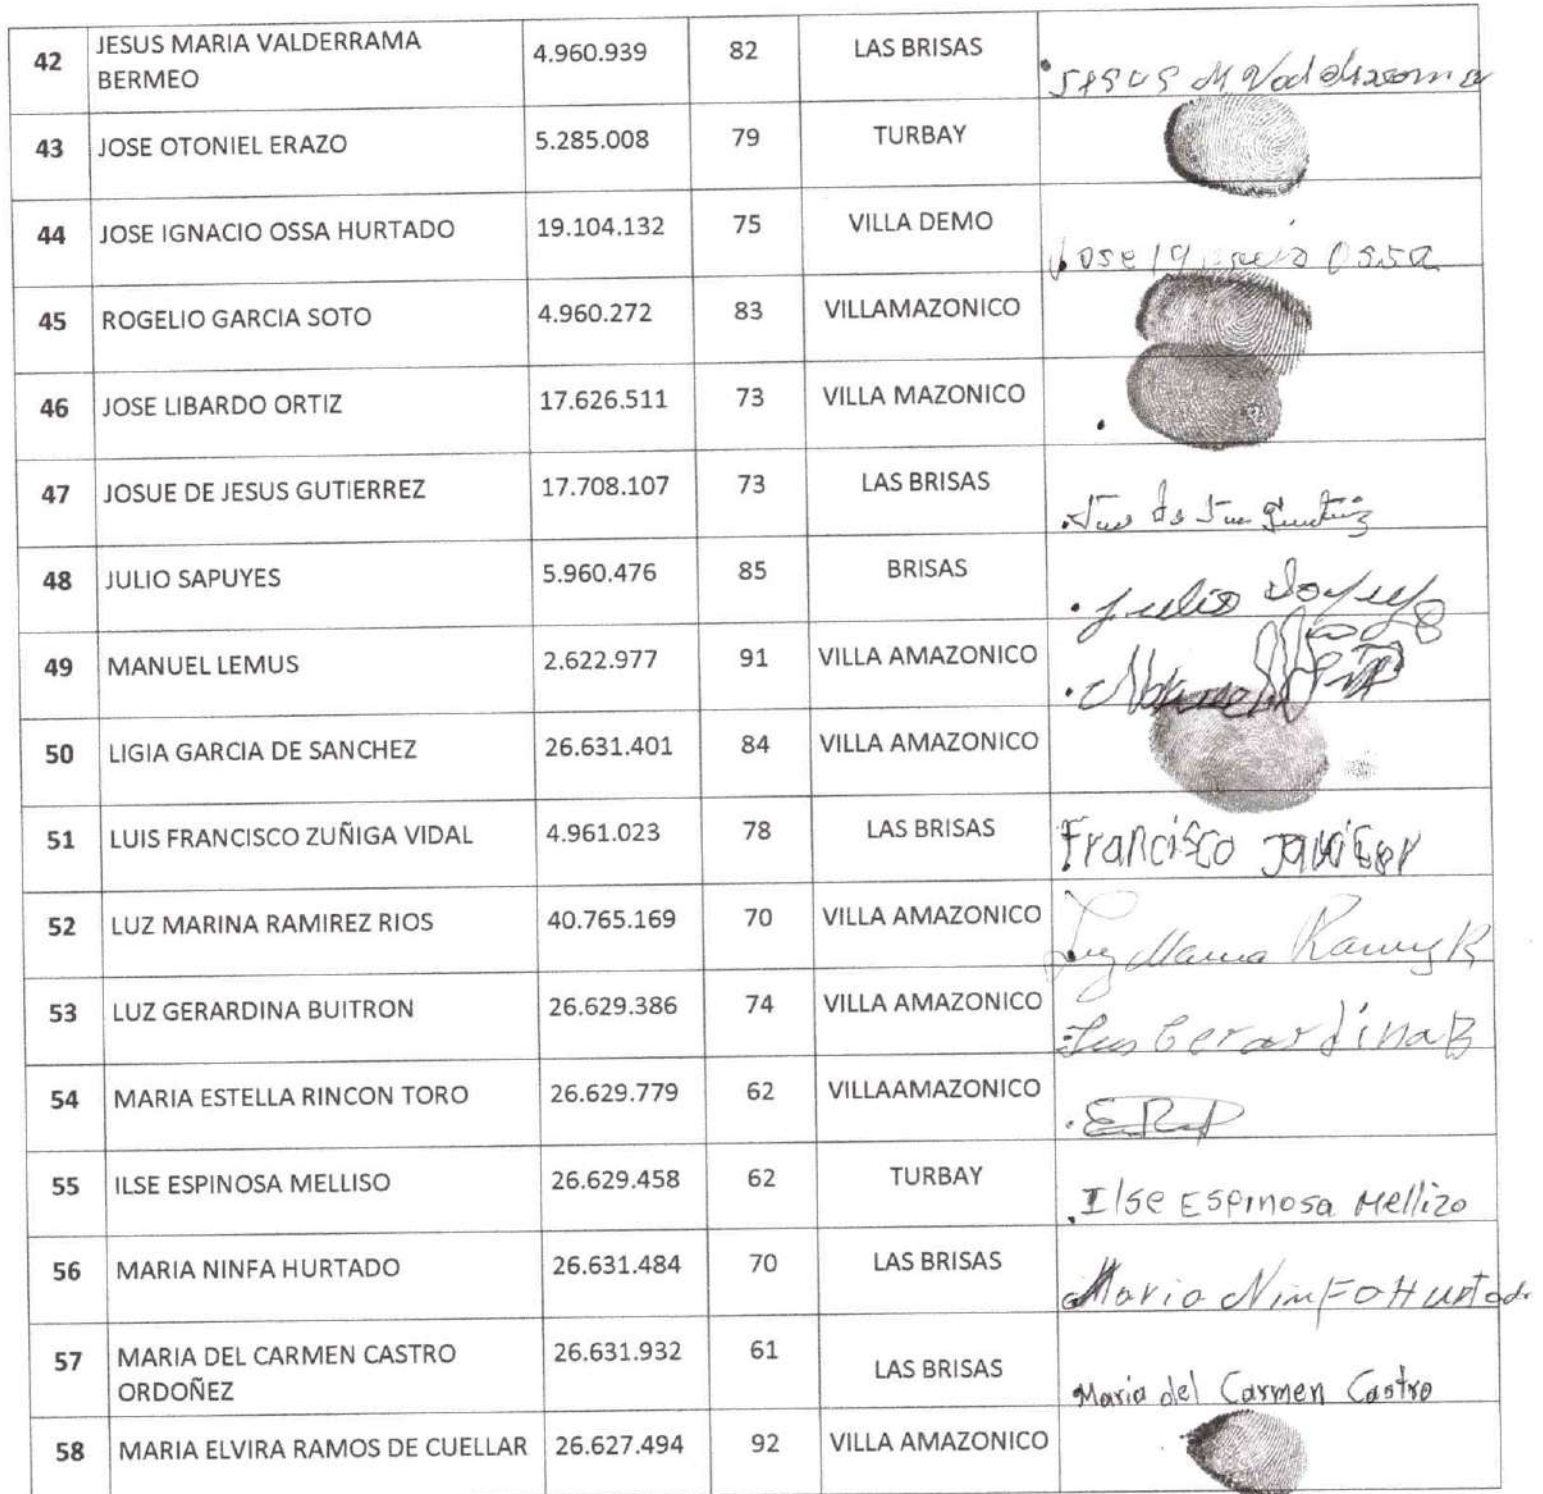 42 JESUS MARIA VALDERRAMA BERMEO 4.960.939 82 LAS BRISAS JESUS M Valderrama
43 JOSE OTONIEL ERAZO 5.285.008 79 TURBAY
44 JOSE IGNACIO OSSA HURTADO 19.104.132 75 VILLA DEMO Jose Ignacio Ossa
45 ROGELIO GARCIA SOTO 4.960.272 83 VILLAMAZONICO
46 JOSE LIBARDO ORTIZ 17.626.511 73 VILLA MAZONICO
47 JOSUE DE JESUS GUTIERREZ 17.708.107 73 LAS BRISAS
48 JULIO SAPUYES 5.960.476 85 BRISAS Julio
49 MANUEL LEMUS 2.622.977 91 VILLA AMAZONICO Manuel
50 LIGIA GARCIA DE SANCHEZ 26.631.401 84 VILLA AMAZONICO
51 LUIS FRANCISCO ZUÑIGA VIDAL 4.961.023 78 LAS BRISAS Francisco
52 LUZ MARINA RAMIREZ RIOS 40.765.169 70 VILLA AMAZONICO Luz Marina Ramirez R
53 LUZ GERARDINA BUITRON 26.629.386 74 VILLA AMAZONICO Luz Gerardina B
54 MARIA ESTELLA RINCON TORO 26.629.779 62 VILLAAMAZONICO
55 ILSE ESPINOSA MELLISO 26.629.458 62 TURBAY Ilse Espinosa Mellizo
56 MARIA NINFA HURTADO 26.631.484 70 LAS BRISAS Maria Ninfa Hurtado
57 MARIA DEL CARMEN CASTRO ORDOÑEZ 26.631.932 61 LAS BRISAS Maria del Carmen Castro
58 MARIA ELVIRA RAMOS DE CUELLAR 26.627.494 92 VILLA AMAZONICO